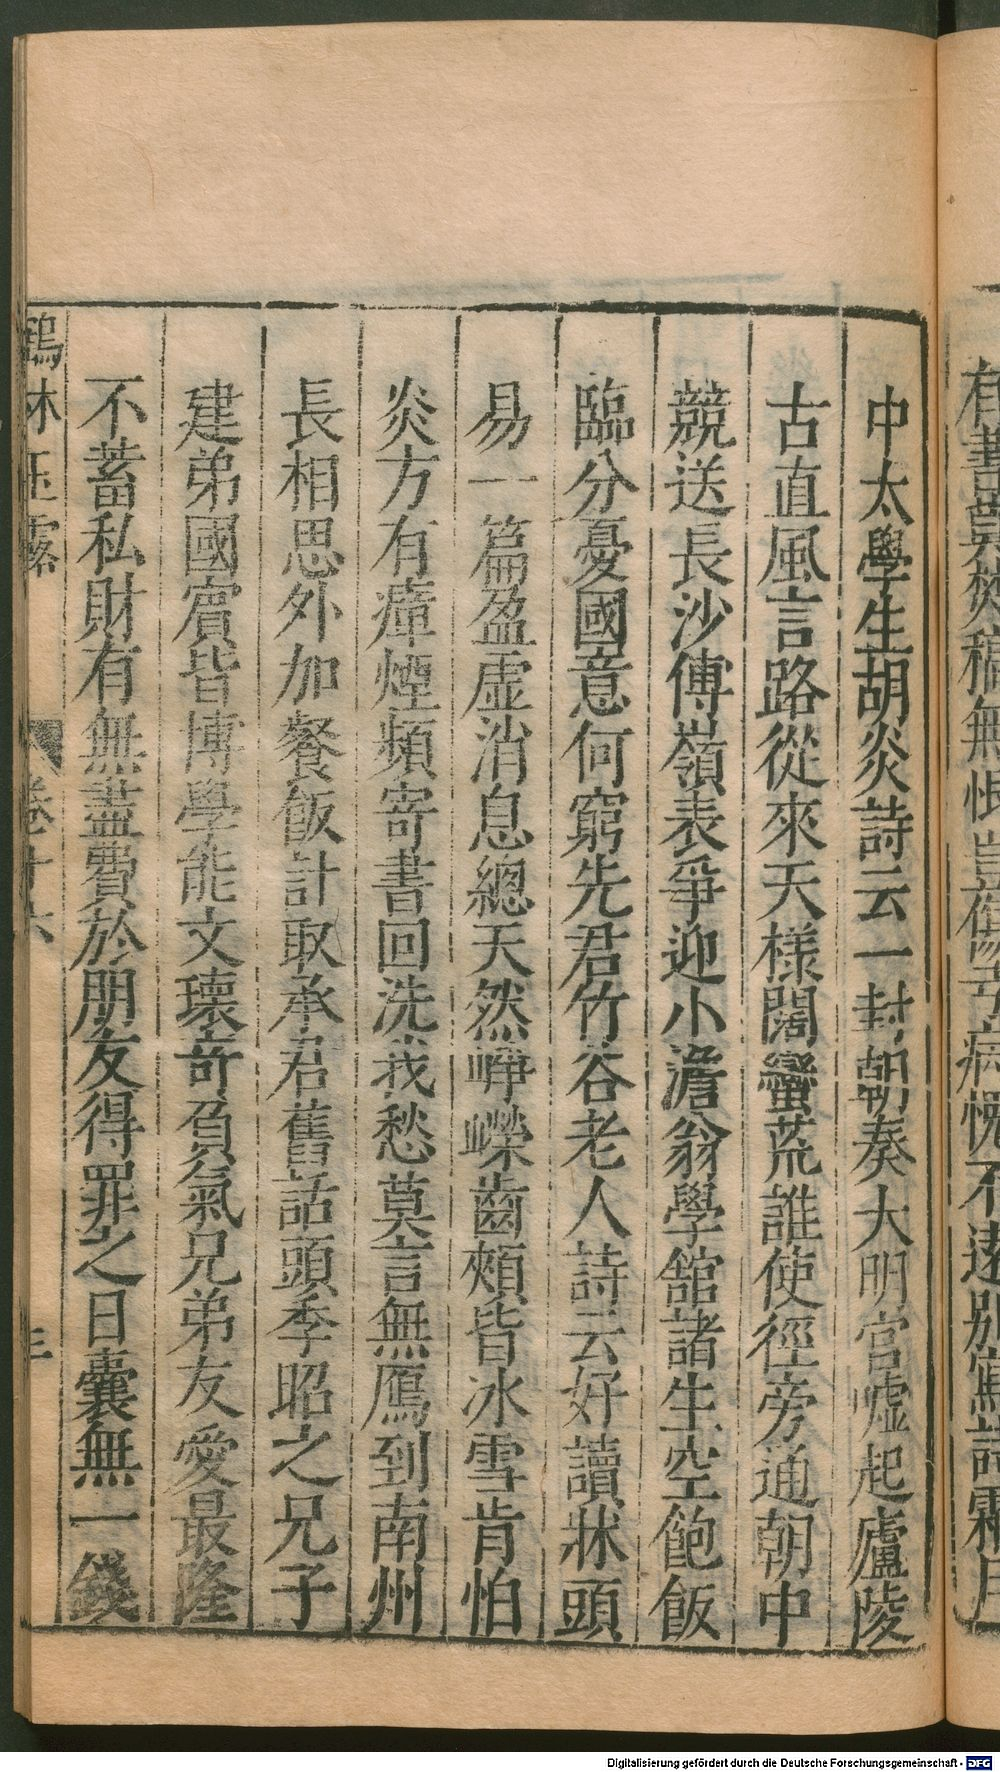 中太學生胡炎詩云一封朝奏大明宮嘘起廬陵
古直風言路從來天樣闊蠻荒誰使徑旁通朝中
競送長沙傅嶺表爭迎小澹翁學館諸生空飽飯
臨分憂國意何窮先君竹谷老人詩云好讀牀頭
易一篇盈虛消息總天然崢嶸齒頰皆冰雪肯怕
炎方有瘴煙頻寄書回洗我愁莫言無鴈到南州
長相思外加餐飯計取承君舊話頭季昭之兄子
建弟國賔皆博學能文瓌奇負氣兄弟友愛最隆
不蓄私財有無盡費於朋友得罪之日囊無一錢
鶴林玉露 卷十六 三
Digitalisierung gefördert durch die Deutsche Forschungsgemeinschaft - DFG